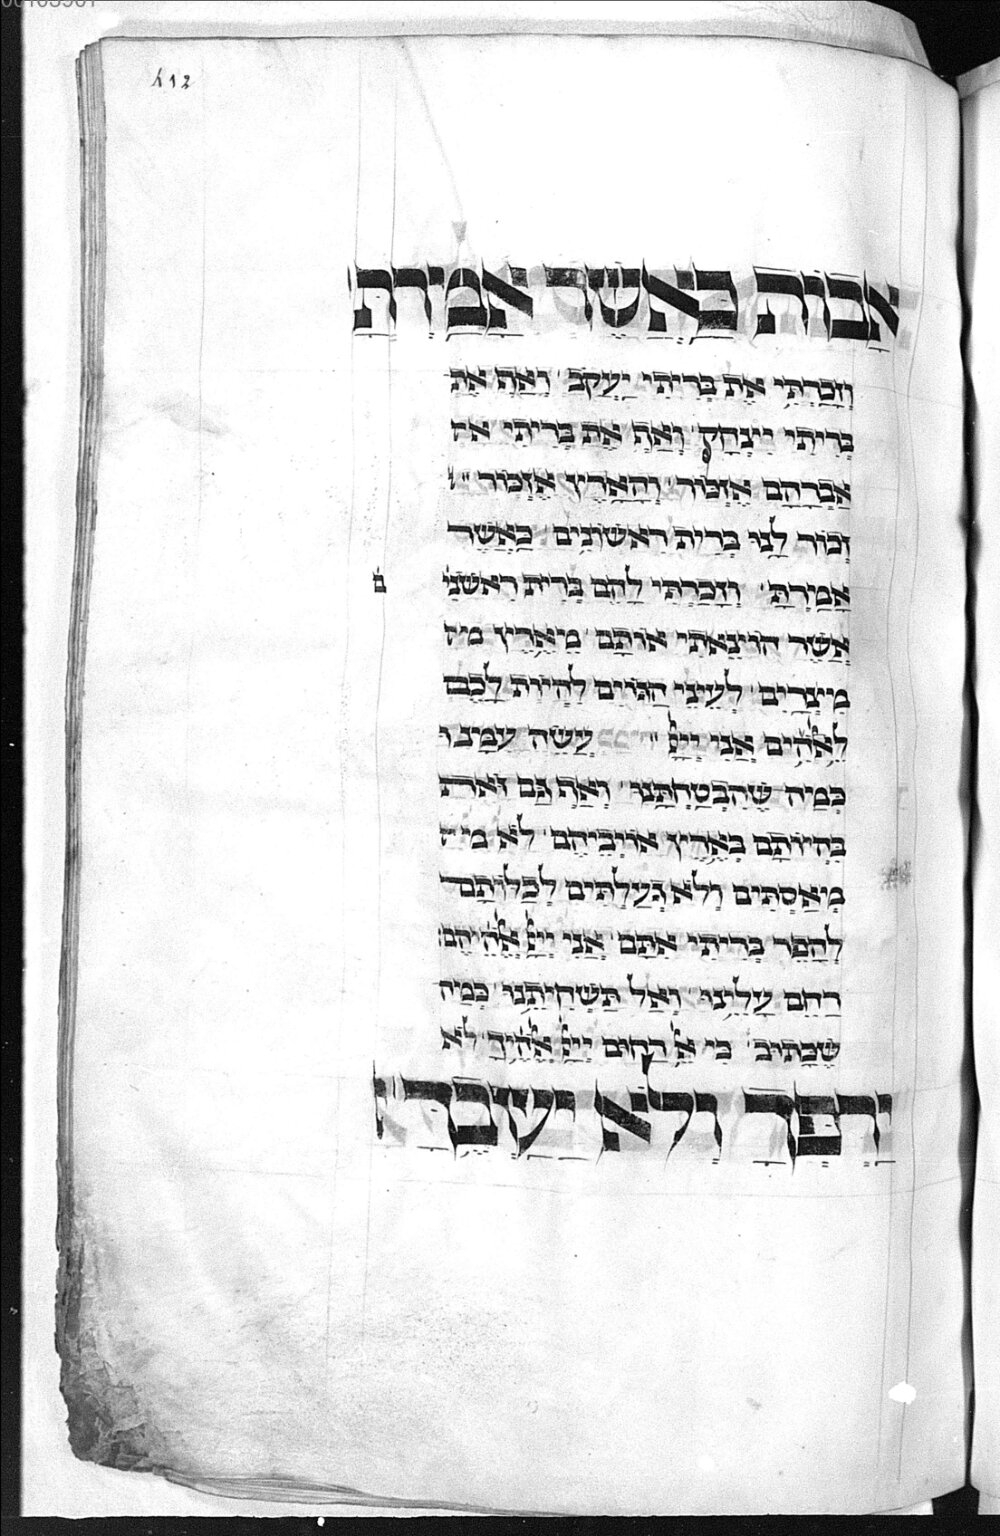 412
אָבוֹת כַּאֲשֶׁר אָמַרְתָּ
וְזָכַרְתִּי אֶת בְּרִיתִי יַעֲקֹב וְאַף אֶת
בְּרִיתִי יִצְחָק וְאַף אֶת בְּרִיתִי את
אַבְרָהָם אֶזְכּוֹר וְהָאָרֶץ אֶזְכּוֹר
זְכוֹר לָנוּ בְּרִית רִאשׁוֹנִים כַּאֲשֶׁר
אָמַרְתָּ וְזָכַרְתִּי לָהֶם בְּרִית רִאשֹׁנִי ם
אֲשֶׁר הוֹצֵאתִי אוֹתָם מֵאֶרֶץ מי
מִצְרַיִם לְעֵינֵי הַגּוֹיִם לִהְיוֹת לָכֶם
לֵאלֹהִים אֲנִי יְיָ עֲשֵׂה עִמָּנוּ
כְּמָה שֶׁהִבְטַחְתָּנוּ וְאַף גַּם זֹאת
בִּהְיוֹתָם בְּאֶרֶץ אוֹיְבֵיהֶם לֹא מי
מְאַסְתִּים וְלֹא גְעַלְתִּים לְכַלּוֹתָם
לְהָפֵר בְּרִיתִי אִתָּם אֲנִי יְיָ אֱלֹהֵיהֶם
רַחֵם עָלֵינוּ וְאַל תַּשְׁחִיתֵנוּ כְּמָה
שֶׁכָּתוּב כִּי אֵל רַחוּם יְיָ אֱלֹהֶיךָ לֹא
יַרְפְּךָ וְלֹא יַשְׁ